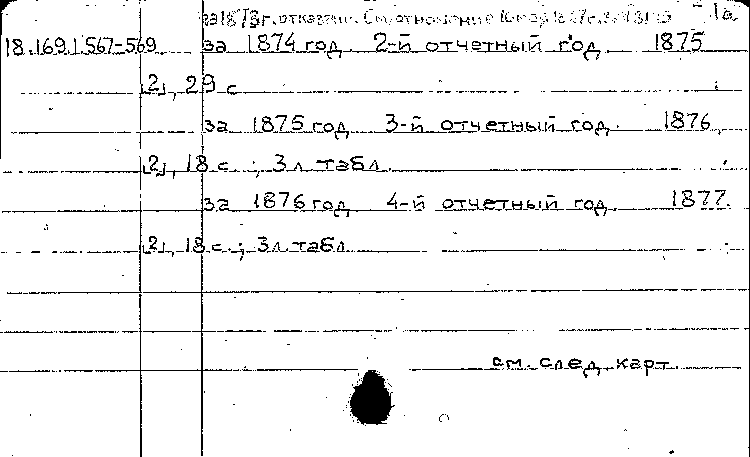 за 1873 г. отказано. См. отношение 1а
18.169.1.567-569 за 1874 год. 2-й отчетный год. 1875
[2], 29 с.
за 1875 год. 3-й отчетный год. 1876.
[2], 18 с.; 3 л. табл.
за 1876 год. 4-й отчетный год. 1877.
[2], 18 с.; 3 л. табл.
см. след. карт.